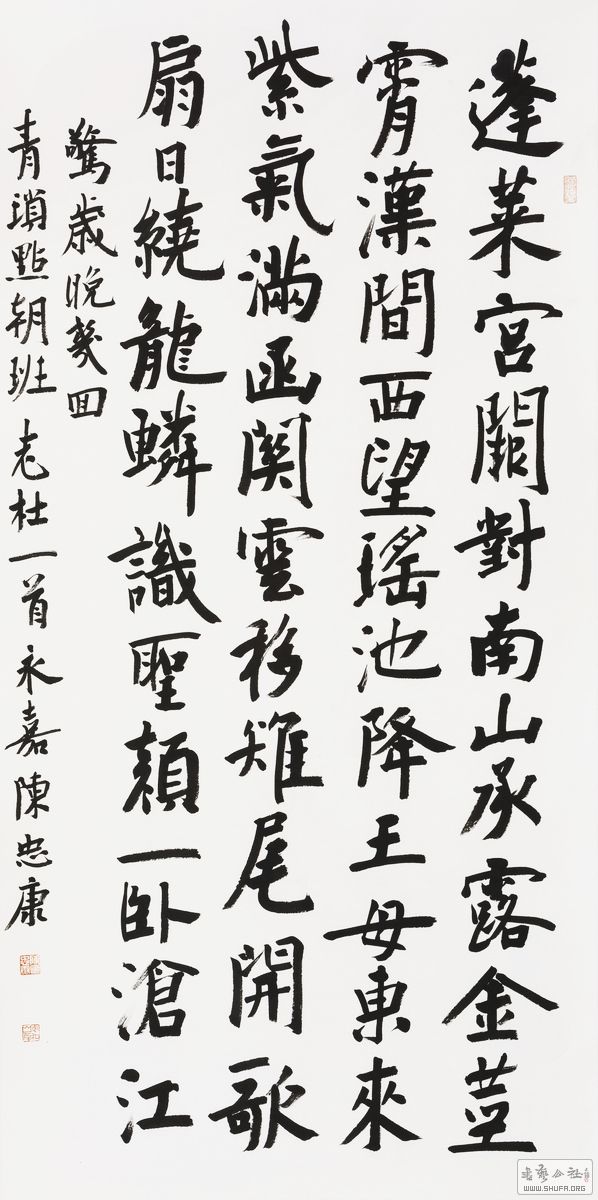 蓬萊宮闕對南山承露金莖
霄漢間西望瑤池降王母東來
紫氣滿函關雲移雉尾開歌
扇日繞龍鱗識聖顏一臥滄江
驚歲晚幾囬
青瑣點朝班 老杜一首 永嘉陳忠康
書藝公社
WWW.SHUFA.ORG